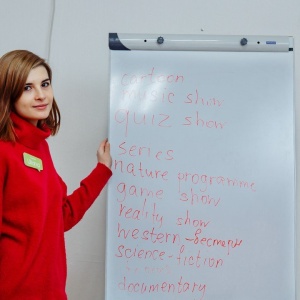 cartoon
music show
quiz show
series
nature programme
game show
reality show
western - вестерн
science-fiction
documentary